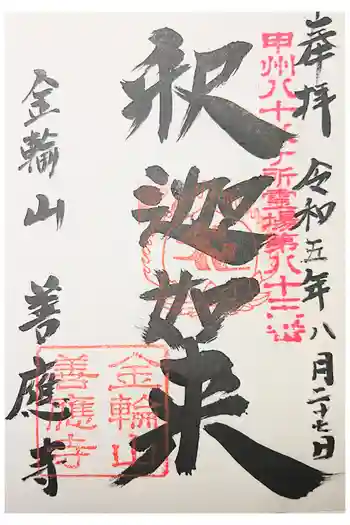 奉拝 令和五年八月二十七日
甲州八十八ヶ所霊場第八十三番
釈迦如来
金輪山 善應寺
金輪山
善應寺